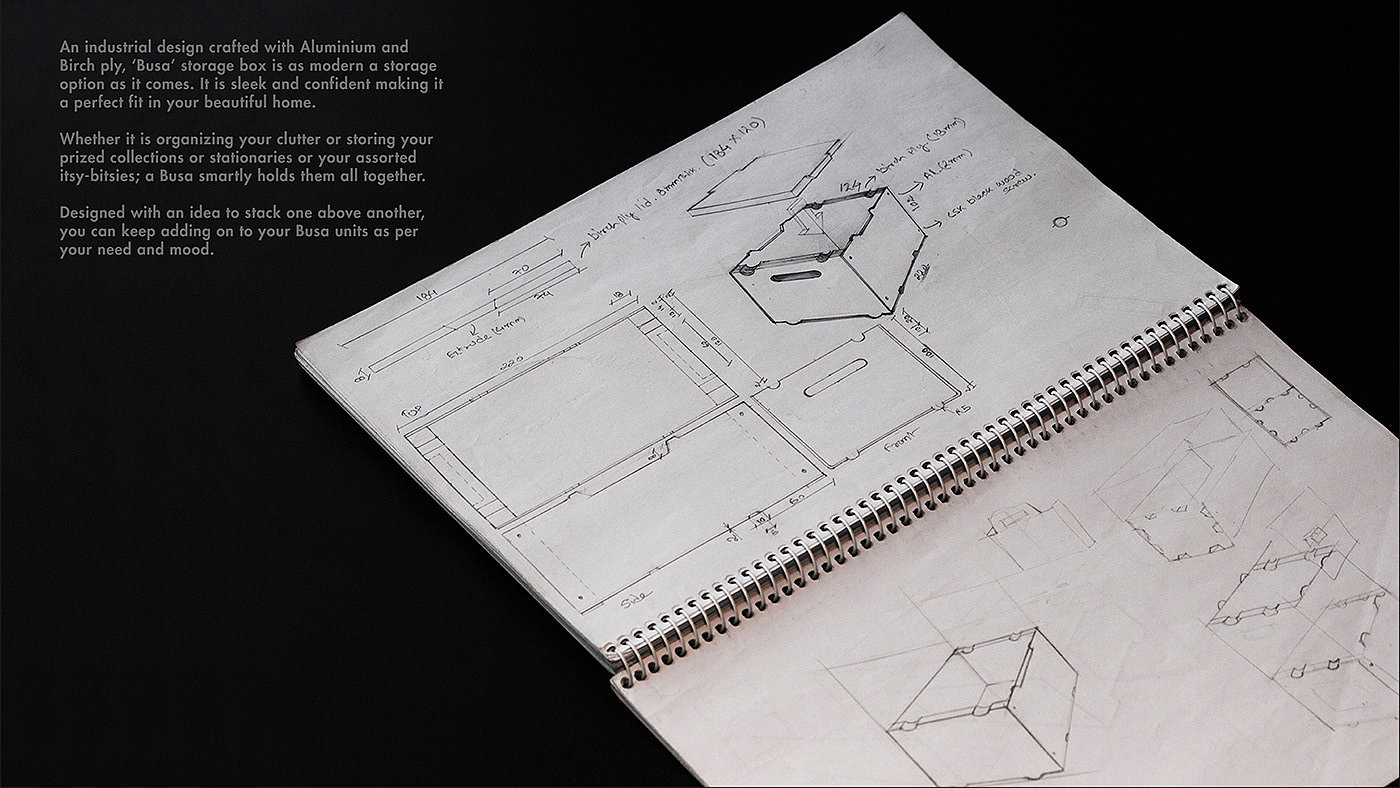 An industrial design crafted with Aluminium and
Birch ply, ‘Busa’ storage box is as modern a storage
option as it comes. It is sleek and confident making it
a perfect fit in your beautiful home.
Whether it is organizing your clutter or storing your
prized collections or stationaries or your assorted
itsy-bitsies; a Busa smartly holds them all together.
Designed with an idea to stack one above another,
you can keep adding on to your Busa units as per
your need and mood.
birch ply lid. 8mm thk. (184 x 120)
birch ply (18mm)
124
AL (2mm)
CSK black wood
screw.
184
70
74
Extrude (4mm)
220
TOP
Front
R5
60
Side